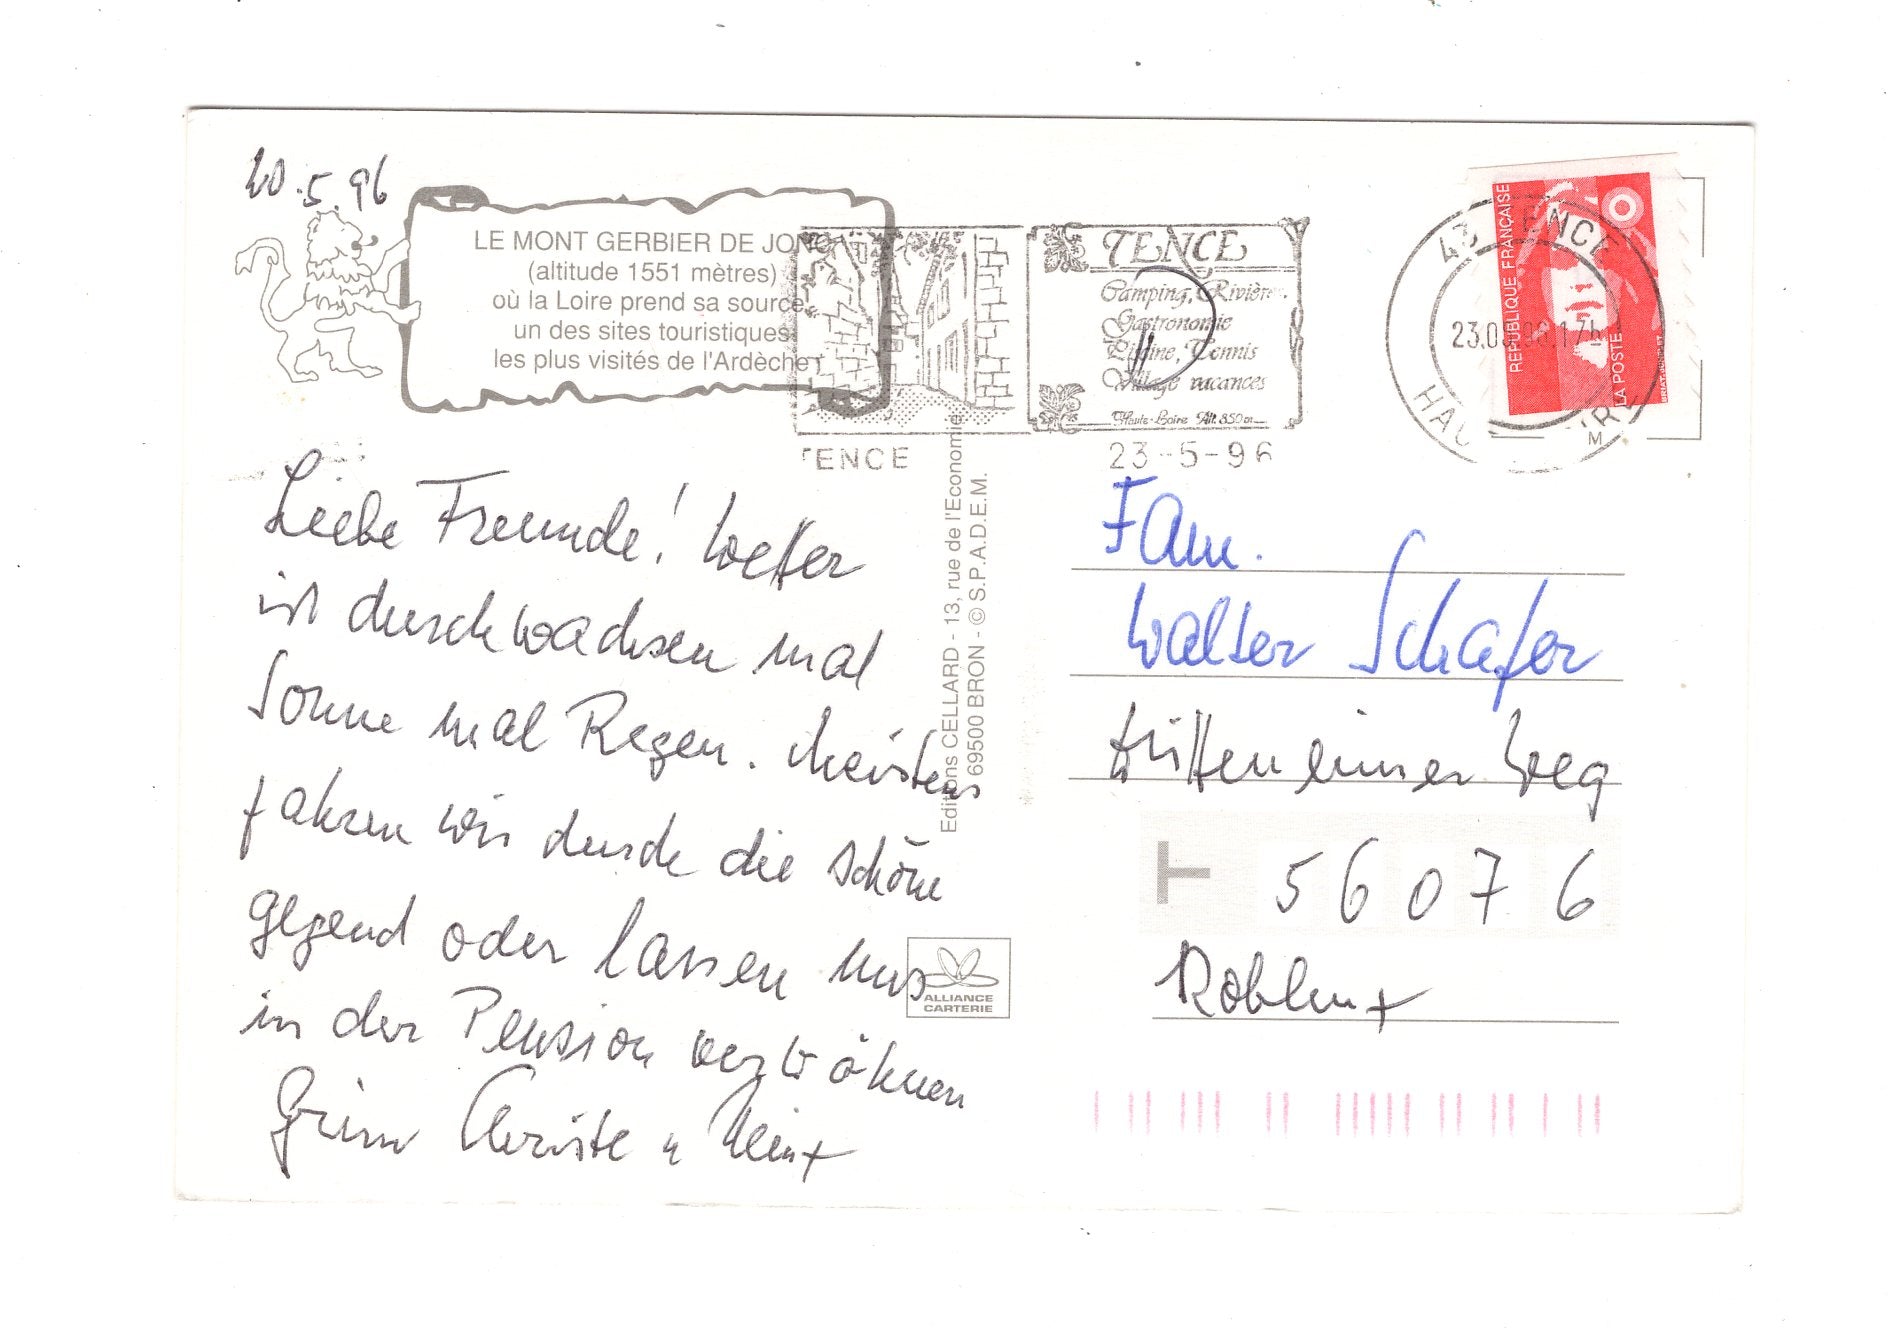 20.5.96
LE MONT GERBIER DE JONC
(altitude 1551 mètres)
où la Loire prend sa source,
un des sites touristiques
les plus visités de l'Ardèche
TENCE
Camping, Rivière.
Gastronomie
Piscine, Tennis
Village vacances
Haute-Loire Alt. 850 m
TENCE
23-5-96
43 TENCE
23.05.96.17h
HAUTE LOIRE
M
RÉPUBLIQUE FRANÇAISE
LA POSTE
D
Liebe Freunde! Wetter
ist durchwachsen mal
Sonne mal Regen. Meistens
fahren wir durch die schöne
gegend oder lassen uns
in der Pension verwöhnen
Christe u Heinz
Editions CELLARD - 13, rue de l'Economie
69500 BRON - © S.P.A.D.E.M.
ALLIANCE
CARTERIE
Fam.
Walter Schäfer
Weg
56076
Koblenz